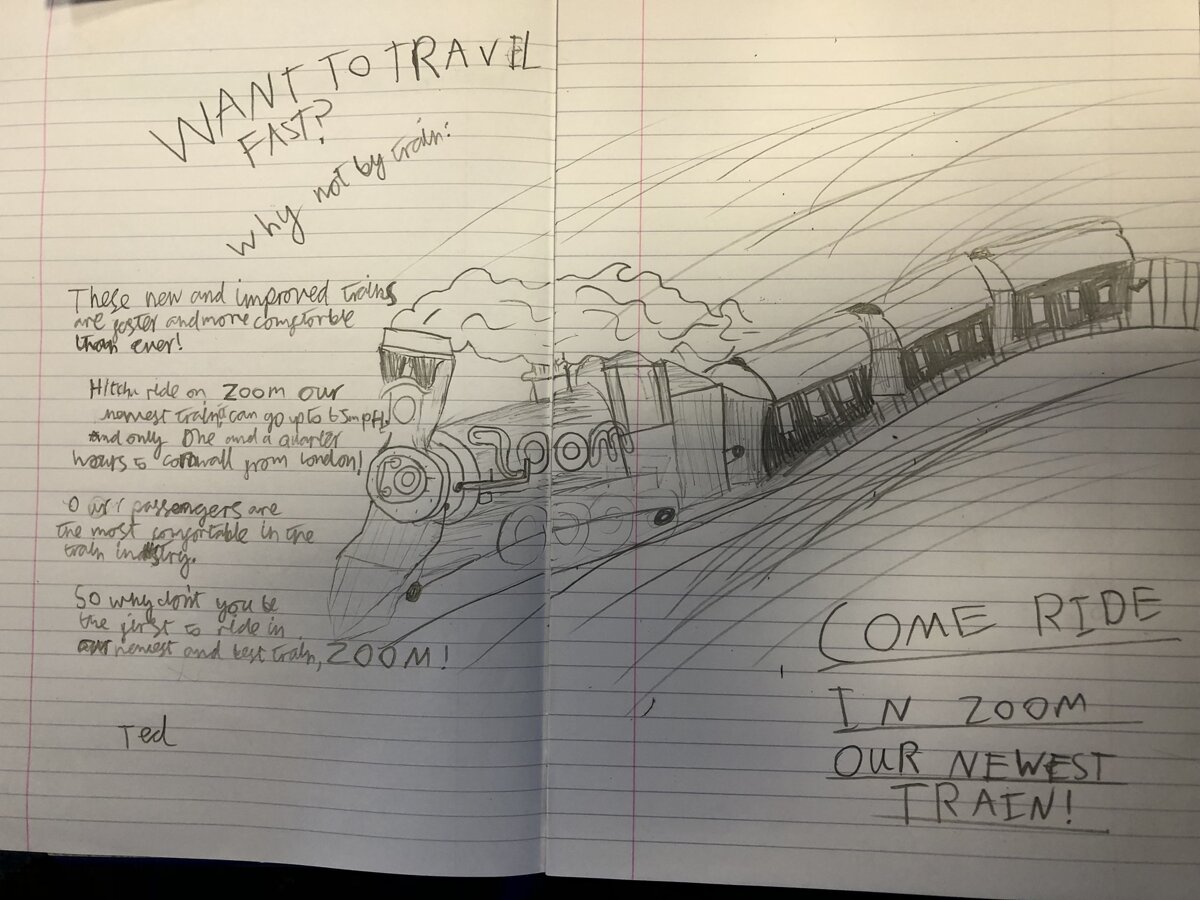 WANT TO TRAVEL
FAST?
Why not by train:
These new and improved trains
are faster and more comfortble
than ever!
Hitch ride on ZOOM our
newest train can go up to 65mph
and only One and a quarter
hours to cornwall from London!
Our passengers are
the most comfortable in the
train industry.
So why don't you be
the first to ride in
our newest and best train, ZOOM!
Ted
Zoom
COME RIDE
IN ZOOM
OUR NEWEST
TRAIN!